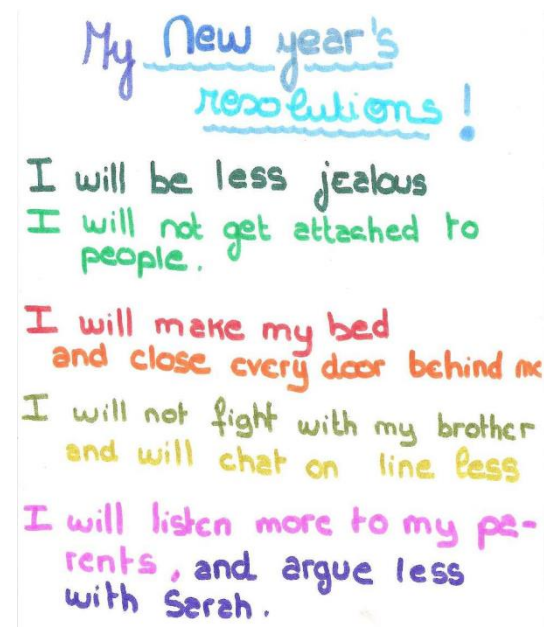 My New year's
resolutions!
I will be less jealous
I will not get attached to
people.
I will make my bed
and close every door behind me
I will not fight with my brother
and will chat on line less
I will listen more to my pa-
rents, and argue less
with Sarah.